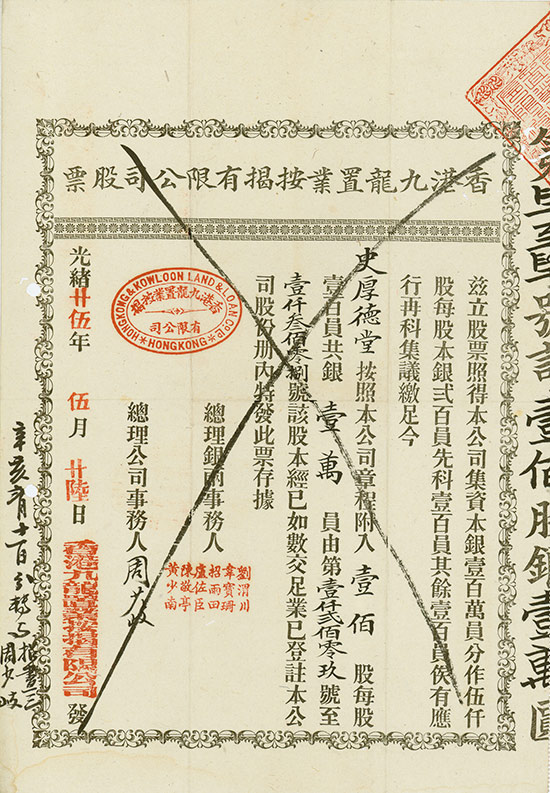 香港九龍置業按揭有限公司股票
茲立股票照得本公司集資本銀壹百萬員分作伍仟
股每股本銀弍百員先科壹百員其餘壹百員俟有應
行再科集議繳足今
史厚德堂按照本公司章程附入壹佰股每股
壹百員共銀壹萬員由第壹仟弍佰零玖號至
壹仟叁佰零捌號該股本經已如數交足業已登註本公
司股份册內特發此票存據
總理銀両事務人
劉渭川
韋寶珊
招雨田
盧佐臣
陳敬亭
黃少南
總理公司事務人周少岐
HONGKONG & KOWLOON LAND & LOAN CO LD
香港九龍置業按揭
有限公司
HONGKONG
光緒廿伍年伍月廿陸日香港九龍置業按揭有限公司發
壹佰股銀壹萬圓
周少岐